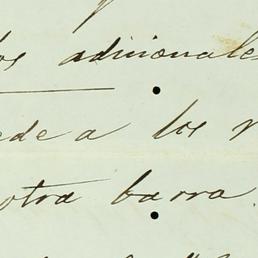 os adicionales
ede a los
otra barra.